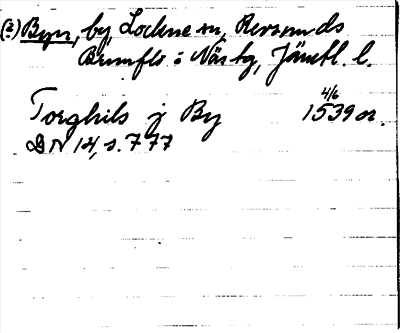 (2) Byn, by Lockne sn, Revsunds
Brunflo o Näs tg, Jämtl. l.
Torghils j By 4/6 1539 or.
DN 14, s. 777